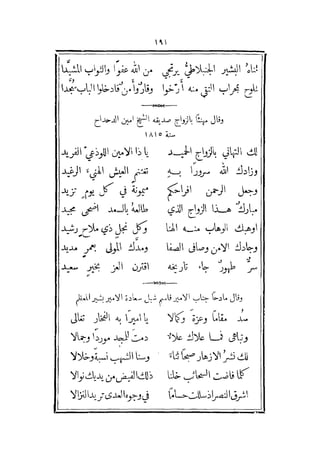 ١٩١
بناهُ البشير الجنبلاطيُّ يرتجي من الله عفوًا والثواب المشيَّدا
نلوح محراب التقى منه أرّخوا وقارٌ وأمنٌ فادخلوا الباب سُجَّدا
وقال مهنئًا بالزواج صديقه الشيخ امين الدحداح
سنة ١٨١٥
لك التهاني بالزواج الحميد يا ذا الامين اللوذعيّ الفريد
وزادك الله سرورًا به تغتنم العيش الهنيءَ الرغيد
وجعل الرحمن افراحكم ميمونةً في كل يومٍ تزيد
مباركٌ هذا الزواج الذي طالعهُ بالسعد اضحى مجيد
اوهبك الوهاب منه الهنا وكل نجلٍ ذي ملاحٍ رشيد
وجادك الامن وصافى الصفا ومدَّك المولى بعمرٍ مديد
سرٌّ طهورٌ جاء تاريخه اقترن العز بخيرٍ سعيد
وقال مادحًا جناب الامير قاسم شبل سعادة الامير بشير المعظم
سُد مقامًا وعزةً وكمالا يا اميرًا به الفخار تعالى
وتباهى فما علاك علاءٌ دمتَ للمجد موردًا وجمالا
لك نشرُ الازهار صبحًا ثناءٌ وسنا الشهب نسبةً وخلالا
كلما فاضت السحائب خلنا ذلك الفيض من يديك نوالا
اشرق النصر اذ سللت حسامًا في وجوه العدى تريد النزالا